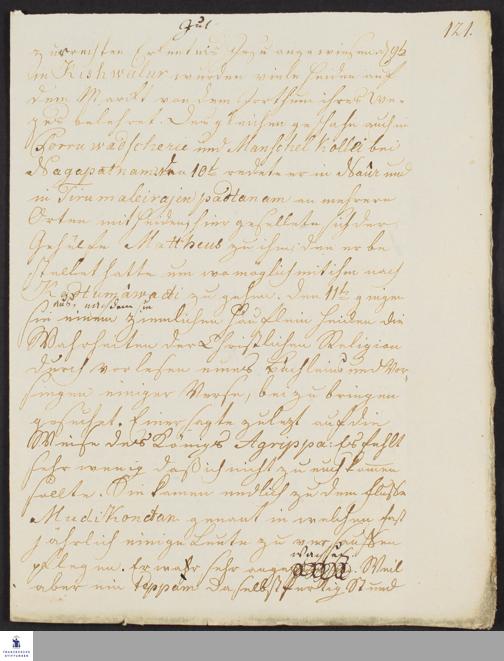 Jul
121.
zur rechten Erkentnis Jesu angewiesen. d. 9t
in Kishwalur wurden viele Heiden auf
dem Marckt von dem Irrthum ihres We-
ges belehret. Dergleichen geschahe auch in
Porruwadscherie und Manschel Kollei bei
Nagapatnam. den 10t redete er in Naûr und
in Tirumaleirajenpadtanam an mehrern
Orten mit Heiden, hier gesellete sich der
Gehülfe Mattheus zu ihm den er be
stellet hatte um womöglich mit ihm nach
zu gehen. den 11t gingen
sie aus, nachdem sie
einem ziemlichen Häuflein Heiden die
Wahrheiten der Christlichen Religion
durch vorlesen eines Büchleins und Vor-
singen einiger Verse, bei zu bringen
gesuchet. Einer sagte zulezt auf die
Weise des Königs Agrippa: Es fehlt
sehr wenig daß ich nicht zu euch kommen
sollte. Sie kamen endlich zu dem Flusse
Mudikondan genant in welchen fast
jährlich einige Leute zu versauffen
pflegen. Er war sehr angewachsen. Weil
aber ein Teppam daselbst fertig stund
FRANCKESCHE
STIFTUNGEN